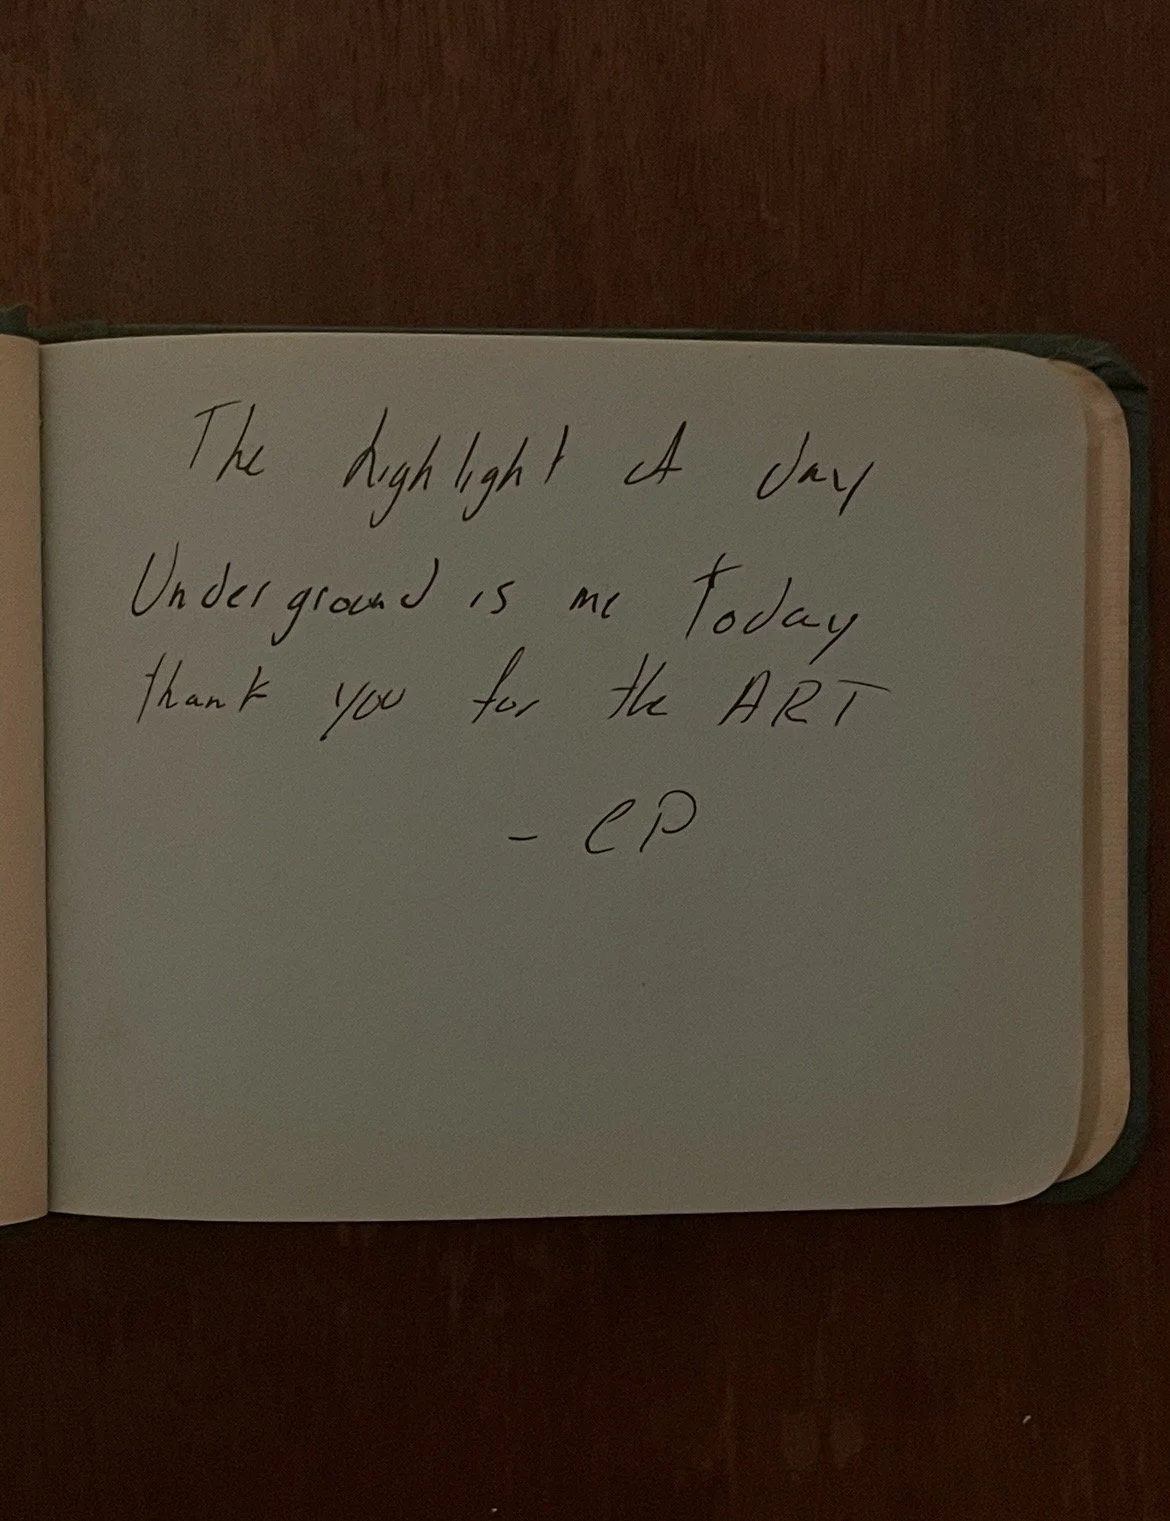 The highlight of day
Underground is me Today
thank you for the ART
- CP